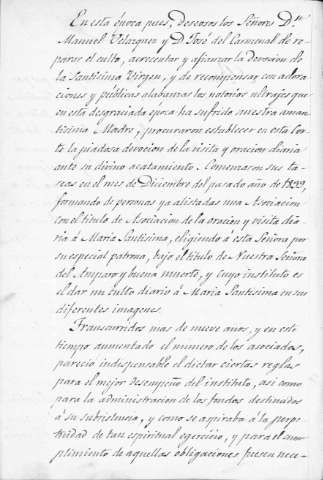 En esta época pues, deseosos los Señores D.n
Manuel Velazquez y D. José del Carmenal de re-
parar el culto, acrecentar y afianzar la devocion de
la Santísima Virgen, y de recompensar con adora-
ciones y públicas alabanzas los notorios ultrajes que
en esta desgraciada época ha sufrido nuestra aman-
tisima Madre; procuraron establecer en esta Cor-
te la piadosa devocion de la visita y oracion diaria
ante su divino acatamiento. Comenzaron sus ta-
reas en el mes de Diciembre del pasado año de 1839,
formando de personas ya alistadas una Asociacion
con el titulo de Asociacion de la oracion y visita dia-
ria á Maria Santisima, eligiendo á esta Señora por
su especial patrona, bajo el titulo de Nuestra Señora
del Amparo y buena muerte, y cuyo instituto es
el dar un culto diario á Maria Santisima en sus
diferentes imagenes.
Transcurridos mas de nueve años, y en este
tiempo aumentado el numero de los asociados,
pareció indispensable el dictar ciertas reglas
para el mejor desempeño del instituto, asi como
para la administracion de los fondos destinados
á su subsistencia, y como se aspiraba á la perpe-
tuidad de tan espiritual egercicio, y para el cum-
plimiento de aquellas obligaciones fuesen nece-